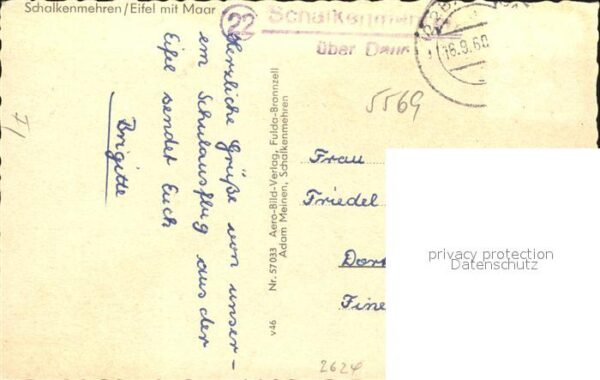 Schalkenmehren/Eifel mit Maar
22
Schalkenmehren
über Daun
16.9.60
5569
Herzliche Grüße von unser-
em Schulausflug aus der
Eifel sendet Euch
Brigitte
v46 Nr. 57033 Aero-Bild-Verlag, Fulda-Bronnzell
Adam Meinen, Schalkenmehren
Frau
Friedel
Dort
Fine
privacy protection
Datenschutz
2624